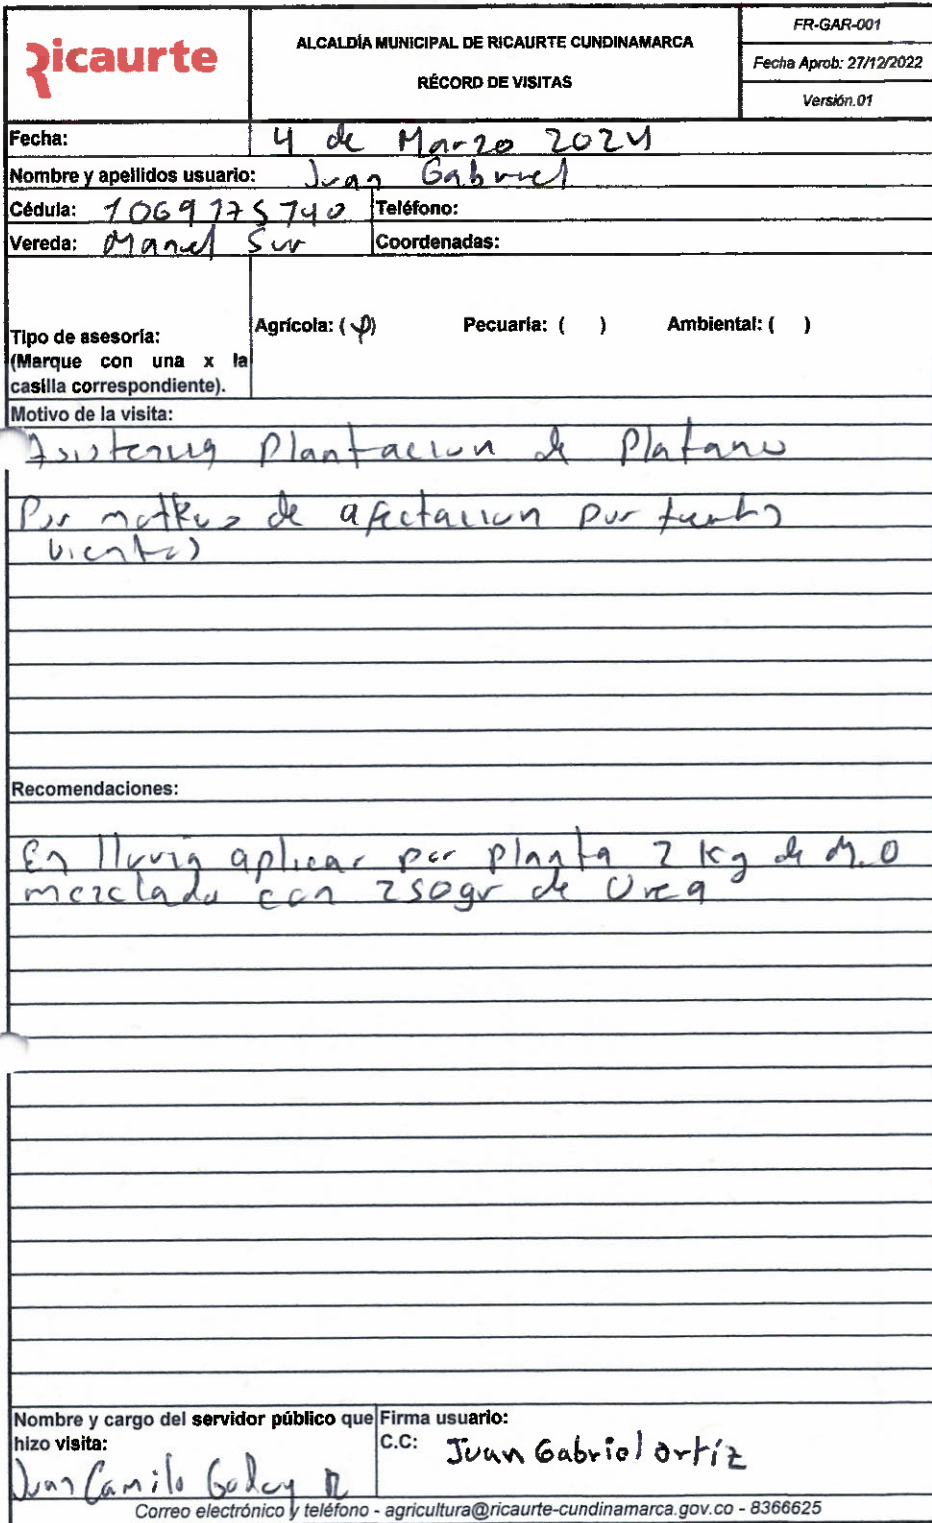 Ricaurte
ALCALDÍA MUNICIPAL DE RICAURTE CUNDINAMARCA
RÉCORD DE VISITAS
FR-GAR-001
Fecha Aprob: 27/12/2022
Versión.01
Fecha: 4 de Marzo 2024
Nombre y apellidos usuario: Juan Gabriel
Cédula: 1069175740 Teléfono:
Vereda: Manuel Sur Coordenadas:
Tipo de asesoría:
(Marque con una x la
casilla correspondiente).
Agrícola: ( ) Pecuaria: ( ) Ambiental: ( )
Motivo de la visita:
Asistencia Plantacion de Platano
Por motivos de afectacion por fuertes
vientos
Recomendaciones:
En lluvia aplicar por planta 2 Kg de M.O
mezclado con 250gr de Urea
Nombre y cargo del servidor público que
hizo visita:
Juan Camilo Godoy R
Firma usuario:
C.C: Juan Gabriel Ortíz
Correo electrónico y teléfono - agricultura@ricaurte-cundinamarca.gov.co - 8366625